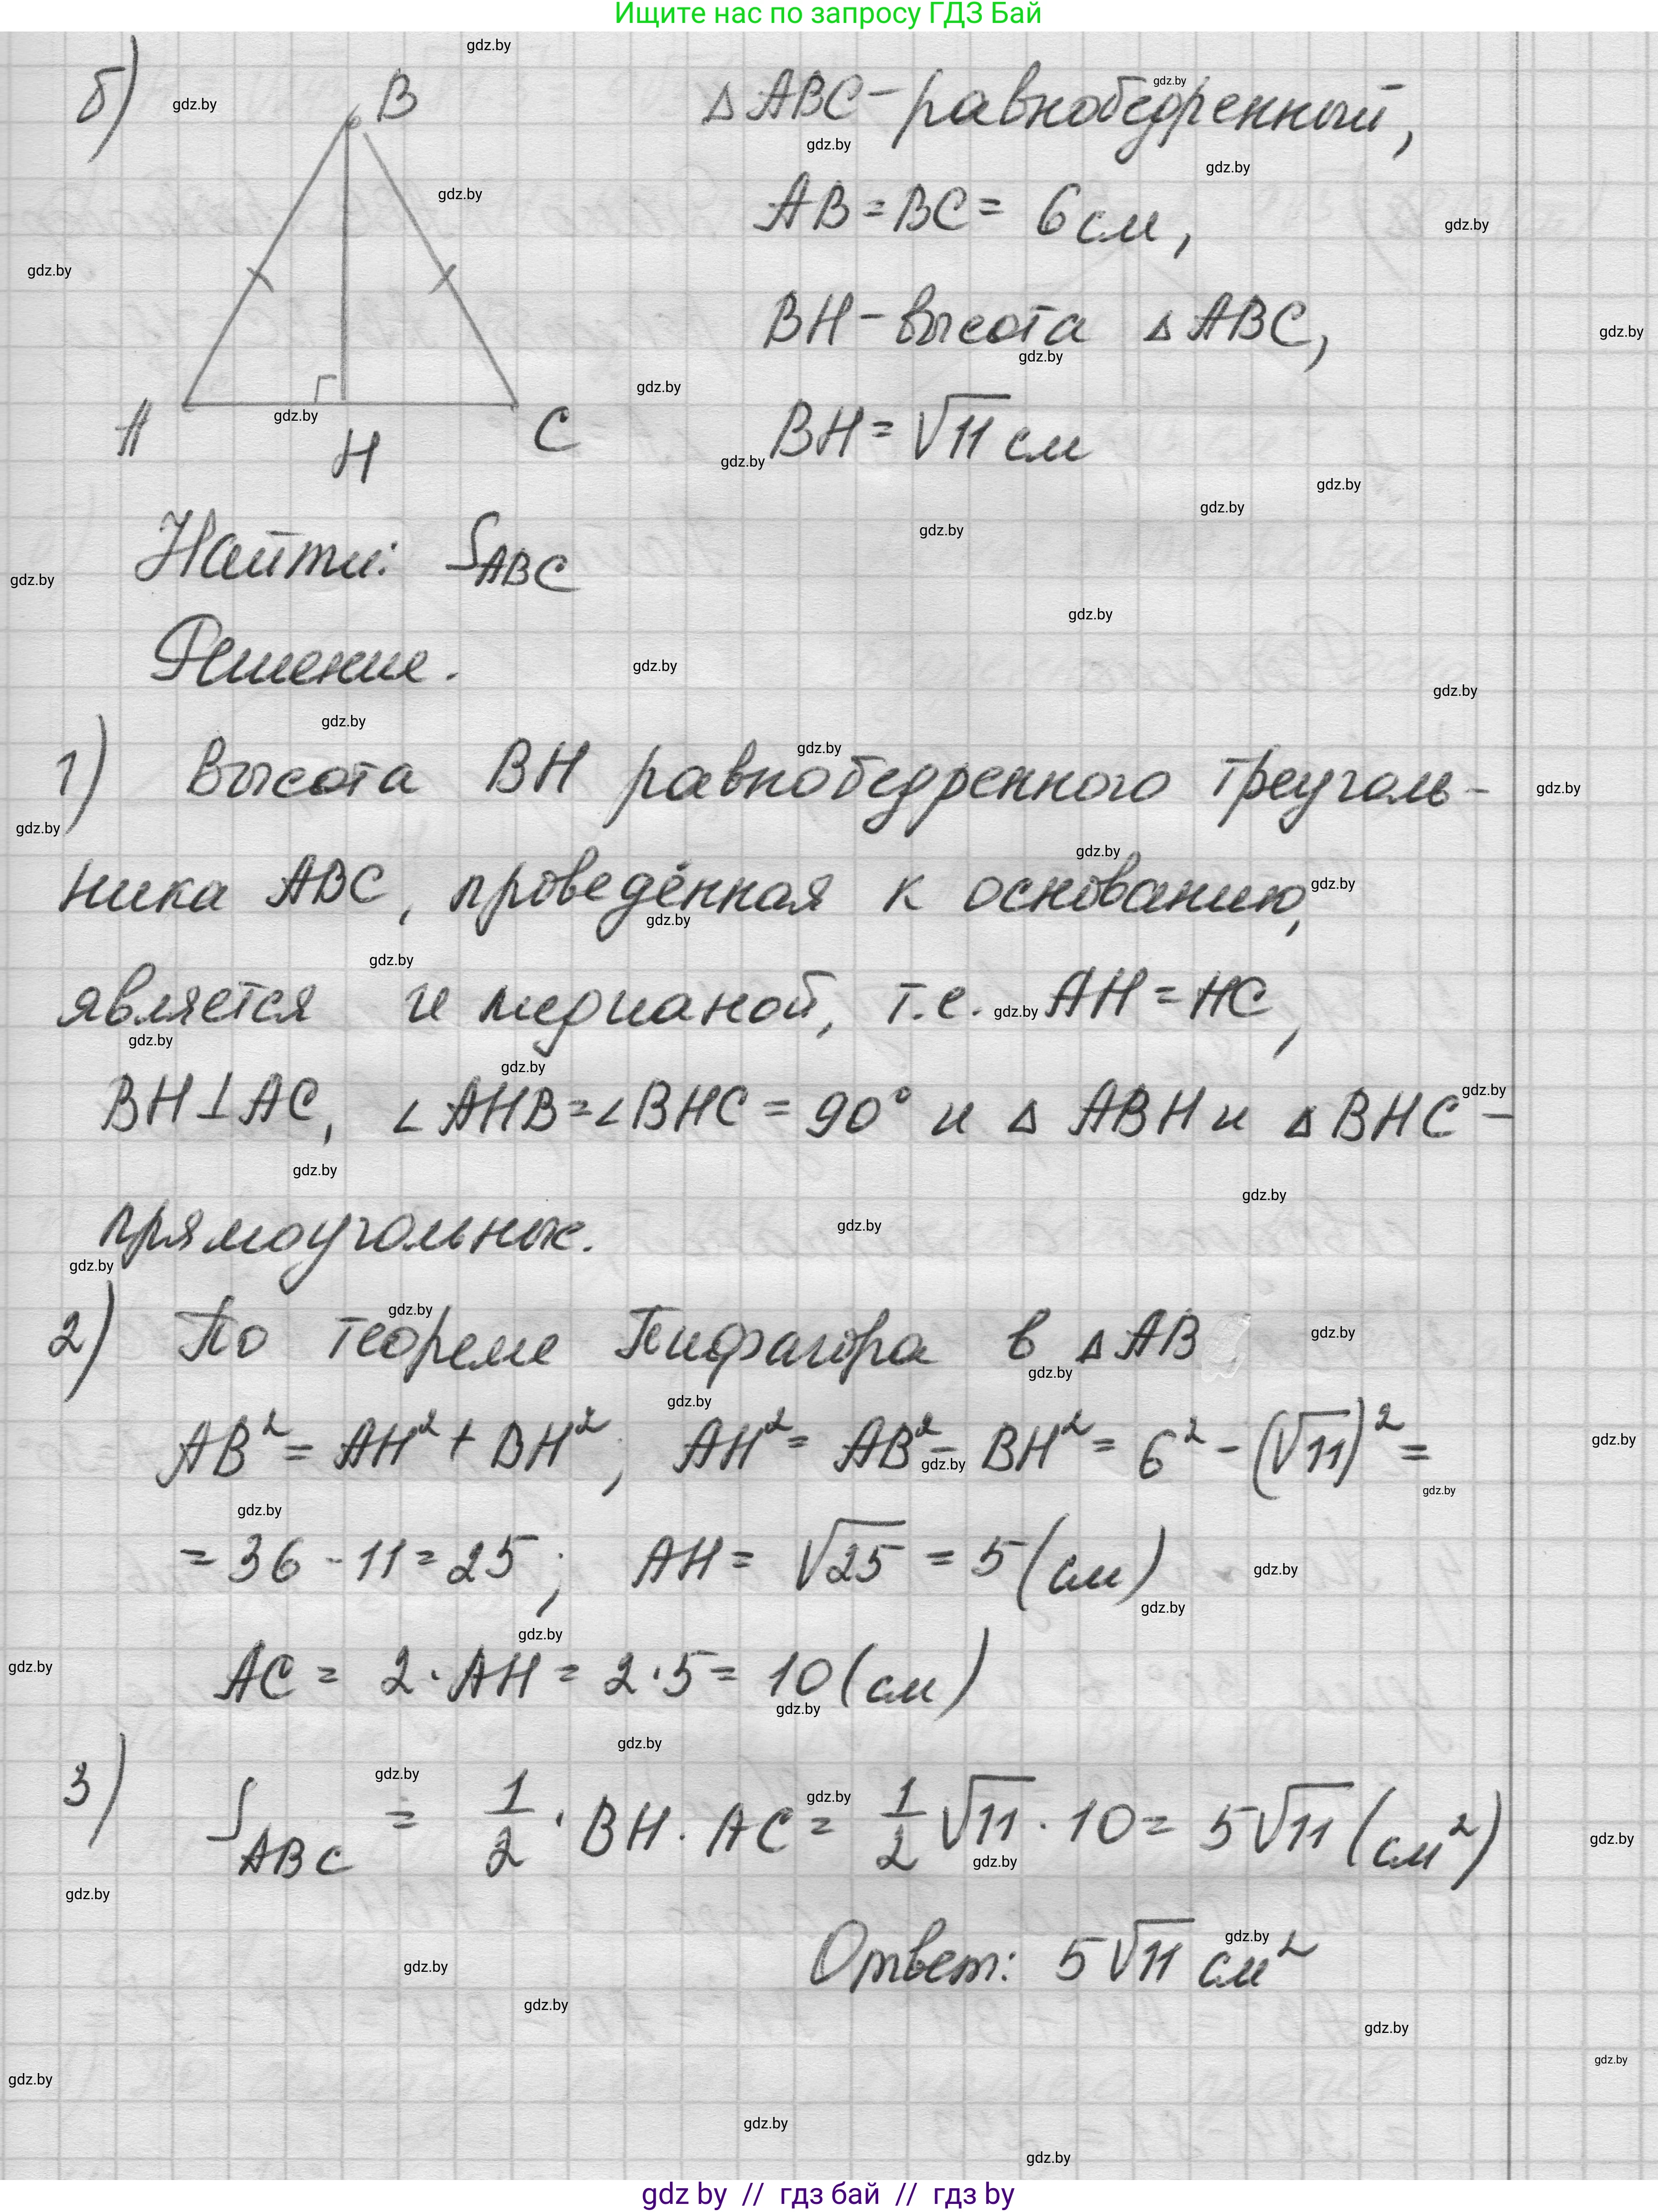 Ищите нас по запросу ГДЗ Бай
б) B ΔABC - равнобедренный,
AB = BC = 6 см,
BH - высота ΔABC,
A H C BH = √11 см
Найти: S_ABC
Решение.
1) Высота BH равнобедренного треуголь-
ника ABC, проведённая к основанию,
является и медианой, т.е. AH = HC,
BH ⊥ AC, ∠AHB = ∠BHC = 90° и Δ ABH и Δ BHC -
прямоугольные.
2) По теореме Пифагора в ΔAB
AB² = AH² + BH²; AH² = AB² - BH² = 6² - (√11)² =
= 36 - 11 = 25; AH = √25 = 5 (см)
AC = 2 · AH = 2 · 5 = 10 (см)
3) S_ABC = 1/2 · BH · AC = 1/2 √11 · 10 = 5√11 (см²)
Ответ: 5√11 см²
gdz by // гдз бай // гдз by